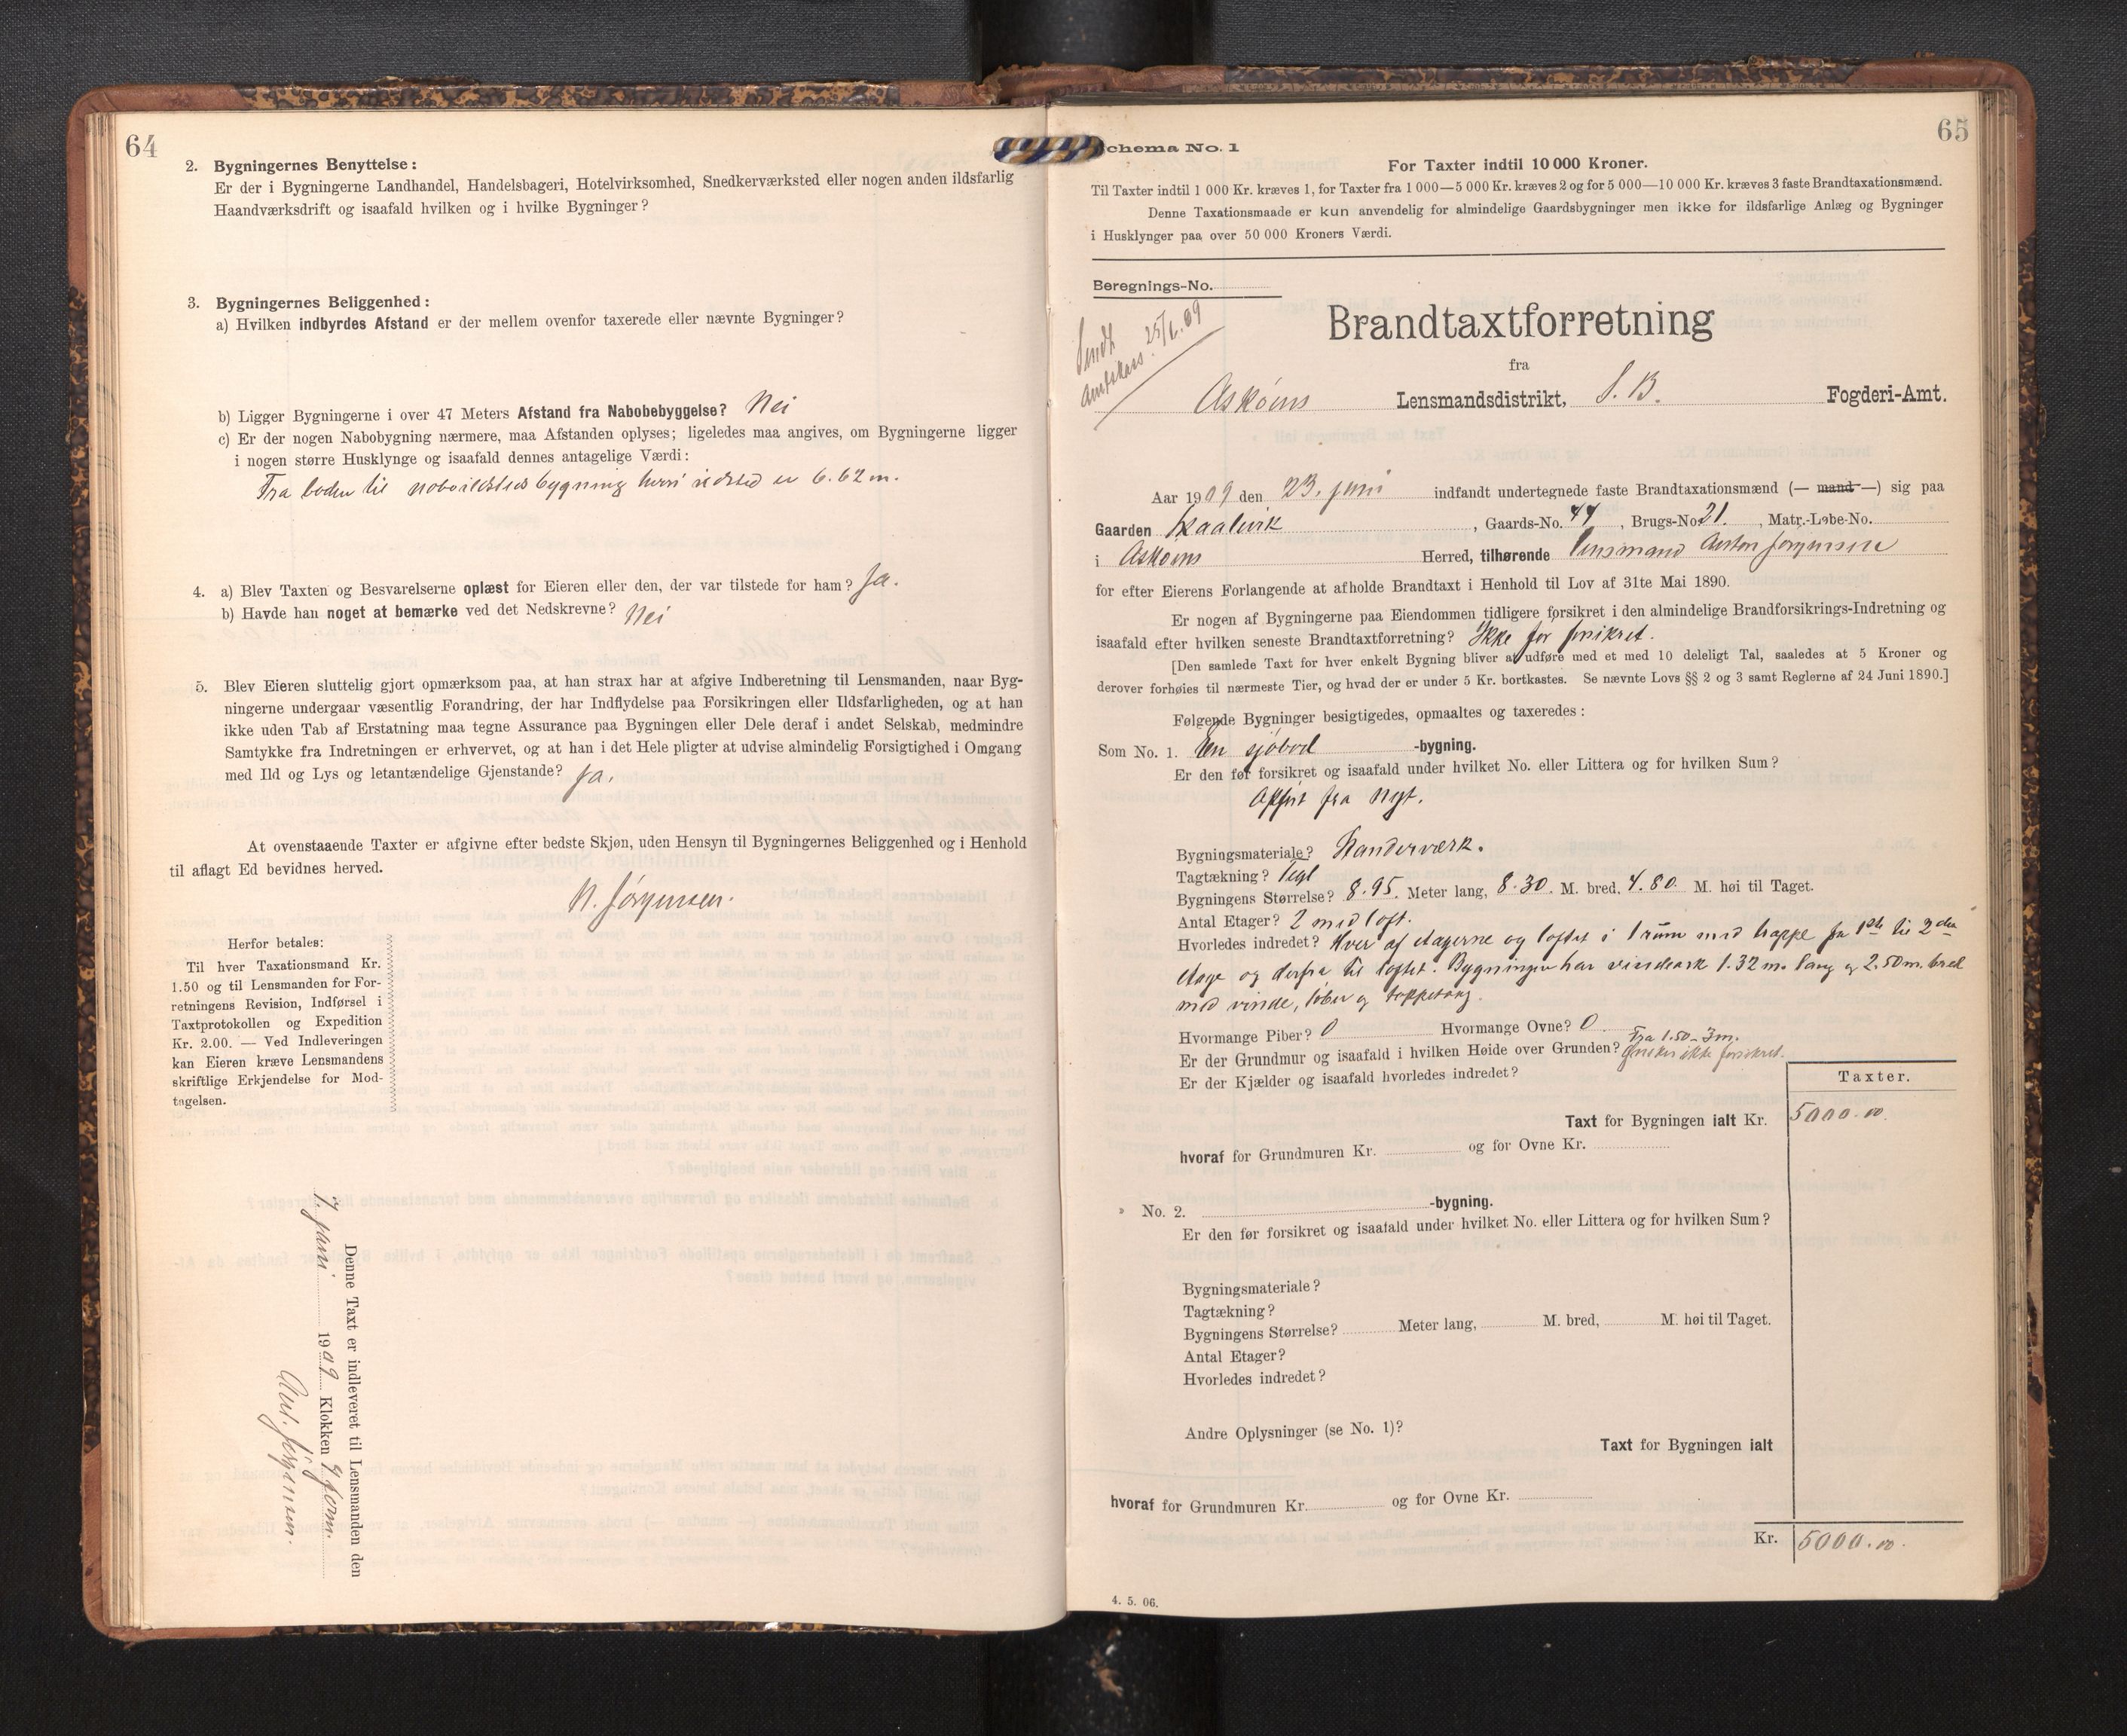 64
2. Bygningernes Benyttelse:
Er der i Bygningerne Landhandel, Handelsbageri, Hotelvirksomhed, Snedkerværksted eller nogen anden ildsfarlig
Haandværksdrift og isaafald hvilken og i hvilke Bygninger?
3. Bygningernes Beliggenhed:
a) Hvilken indbyrdes Afstand er der mellem ovenfor taxerede eller nævnte Bygninger?
b) Ligger Bygningerne i over 47 Meters Afstand fra Nabobebyggelse? Nei
c) Er der nogen Nabobygning nærmere, maa Afstanden oplyses; ligeledes maa angives, om Bygningerne ligger
i nogen større Husklynge og isaafald dennes antagelige Værdi:
Fra boden til naboildsteds bygning hvori ildsted er 6.62 m.
4. a) Blev Taxten og Besvarelserne oplæst for Eieren eller den, der var tilstede for ham? Ja.
b) Havde han noget at bemærke ved det Nedskrevne? Nei
5. Blev Eieren sluttelig gjort opmærksom paa, at han strax har at afgive Indberetning til Lensmanden, naar Byg-
ningerne undergaar væsentlig Forandring, der har Indflydelse paa Forsikringen eller Ildsfarligheden, og at han
ikke uden Tab af Erstatning maa tegne Assurance paa Bygningen eller Dele deraf i andet Selskab, medmindre
Samtykke fra Indretningen er erhvervet, og at han i det Hele pligter at udvise almindelig Forsigtighed i Omgang
med Ild og Lys og letantændelige Gjenstande? Ja.
At ovenstaaende Taxter er afgivne efter bedste Skjøn, uden Hensyn til Bygningernes Beliggenhed og i Henhold
til aflagt Ed bevidnes herved.
N. Jörgensen.
Herfor betales:
Til hver Taxationsmand Kr.
1.50 og til Lensmanden for For-
retningens Revision, Indførsel i
Taxtprotokollen og Expedition
Kr. 2.00. — Ved Indleveringen
kan Eieren kræve Lensmandens
skriftlige Erkjendelse for Mod-
tagelsen.
Denne Taxt er indleveret til Lensmanden den
7. juni 1909 Klokken 9 form.
Ant. Jörgensen.
65
Schema No. 1
For Taxter indtil 10 000 Kroner.
Til Taxter indtil 1 000 Kr. kræves 1, for Taxter fra 1 000—5 000 Kr. kræves 2 og for 5 000—10 000 Kr. kræves 3 faste Brandtaxationsmænd.
Denne Taxationsmaade er kun anvendelig for almindelige Gaardsbygninger men ikke for ildsfarlige Anlæg og Bygninger
i Husklynger paa over 50 000 Kroners Værdi.
Beregnings-No.
Sendt
Amtskass. 25/6.09
Brandtaxtforretning
fra
Askøens Lensmandsdistrikt, S. B. Fogderi-Amt.
Aar 1909 den 23. juni indfandt undertegnede faste Brandtaxationsmænd (— mand —) sig paa
Gaarden Skaalevik, Gaards-No. 44, Brugs-No. 21., Matr.-Løbe-No.
i Askøens Herred, tilhørende lensmand Anton Jörgensen
for efter Eierens Forlangende at afholde Brandtaxt i Henhold til Lov af 31te Mai 1890.
Er nogen af Bygningerne paa Eiendommen tidligere forsikret i den almindelige Brandforsikrings-Indretning og
isaafald efter hvilken seneste Brandtaxtforretning? Ikke før forsikret.
[Den samlede Taxt for hver enkelt Bygning bliver at udføre med et med 10 deleligt Tal, saaledes at 5 Kroner og
derover forhøies til nærmeste Tier, og hvad der er under 5 Kr. bortkastes. Se nævnte Lovs §§ 2 og 3 samt Reglerne af 24 Juni 1890.]
Følgende Bygninger besigtigedes, opmaaltes og taxeredes:
Som No. 1. En sjöbod -bygning.
Er den før forsikret og isaafald under hvilket No. eller Littera og for hvilken Sum?
Opført fra Nyt.
Bygningsmateriale? Standerværk.
Tagtækning? Tegl
Bygningens Størrelse? 8.95. Meter lang, 8.30. M. bred, 4.80 M. høi til Taget.
Antal Etager? 2 med loft.
Hvorledes indredet? Hver af etagerne og loftet i 1 rum med trappe fra 1ste til 2den
etage og derfra til loftet. Bygningen har vindeark 1.32 m. lang og 2.50 m. bred
med vinde, löber og toppetang.
Hvormange Piber? 0 Hvormange Ovne? 0.
Er der Grundmur og isaafald i hvilken Høide over Grunden? Fra 1.50–3 m. Ønskes ikke forsikret.
Er der Kjælder og isaafald hvorledes indredet?
Taxter.
Taxt for Bygningen ialt Kr. 5000.00
hvoraf for Grundmuren Kr. og for Ovne Kr.
» No. 2. -bygning.
Er den før forsikret og isaafald under hvilket No. eller Littera og for hvilken Sum?
Bygningsmateriale?
Tagtækning?
Bygningens Størrelse? Meter lang, M. bred, M. høi til Taget.
Antal Etager?
Hvorledes indredet?
Andre Oplysninger (se No. 1)?
Taxt for Bygningen ialt
hvoraf for Grundmuren Kr. og for Ovne Kr.
Kr. 5000.00.
4. 5. 06.